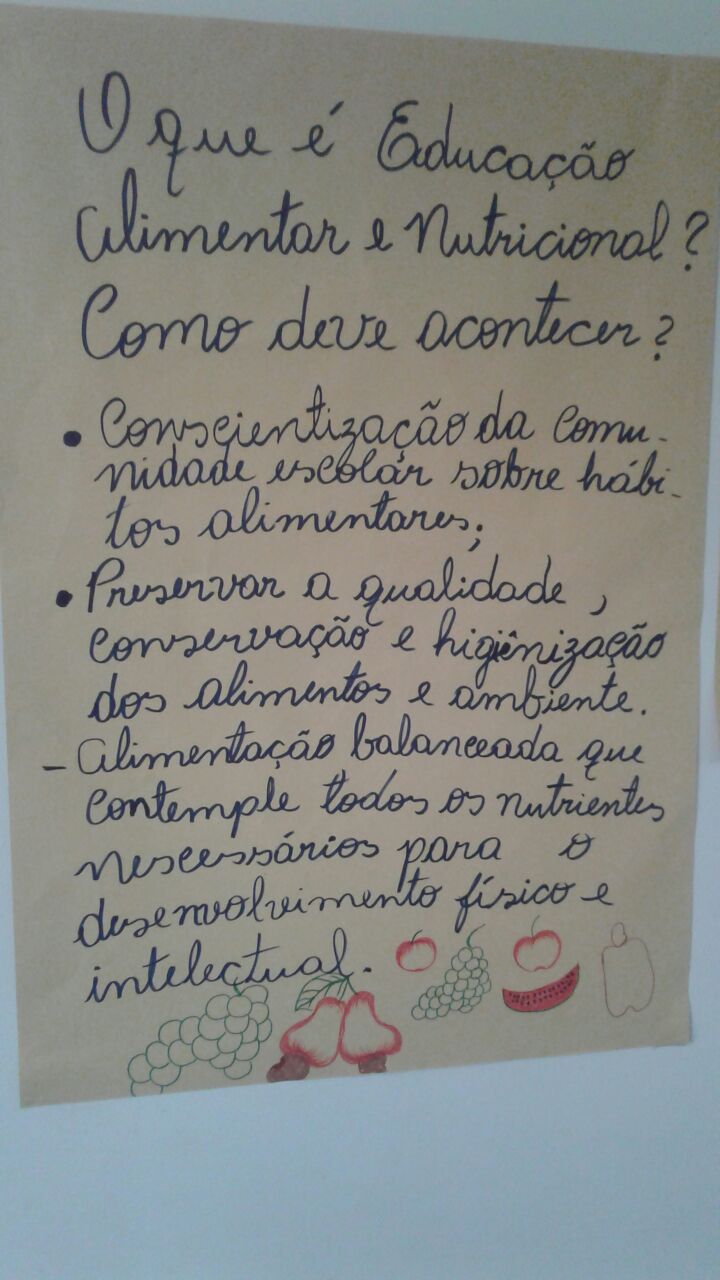 O que é Educação
Alimentar e Nutricional?
Como deve acontecer?
• Conscientização da comu-
nidade escolar sobre hábi-
tos alimentares;
• Preservar a qualidade,
conservação e higiênização
dos alimentos e ambiente.
- Alimentação balanceada que
contemple todos os nutrientes
nescessários para o
desenvolvimento físico e
intelectual.